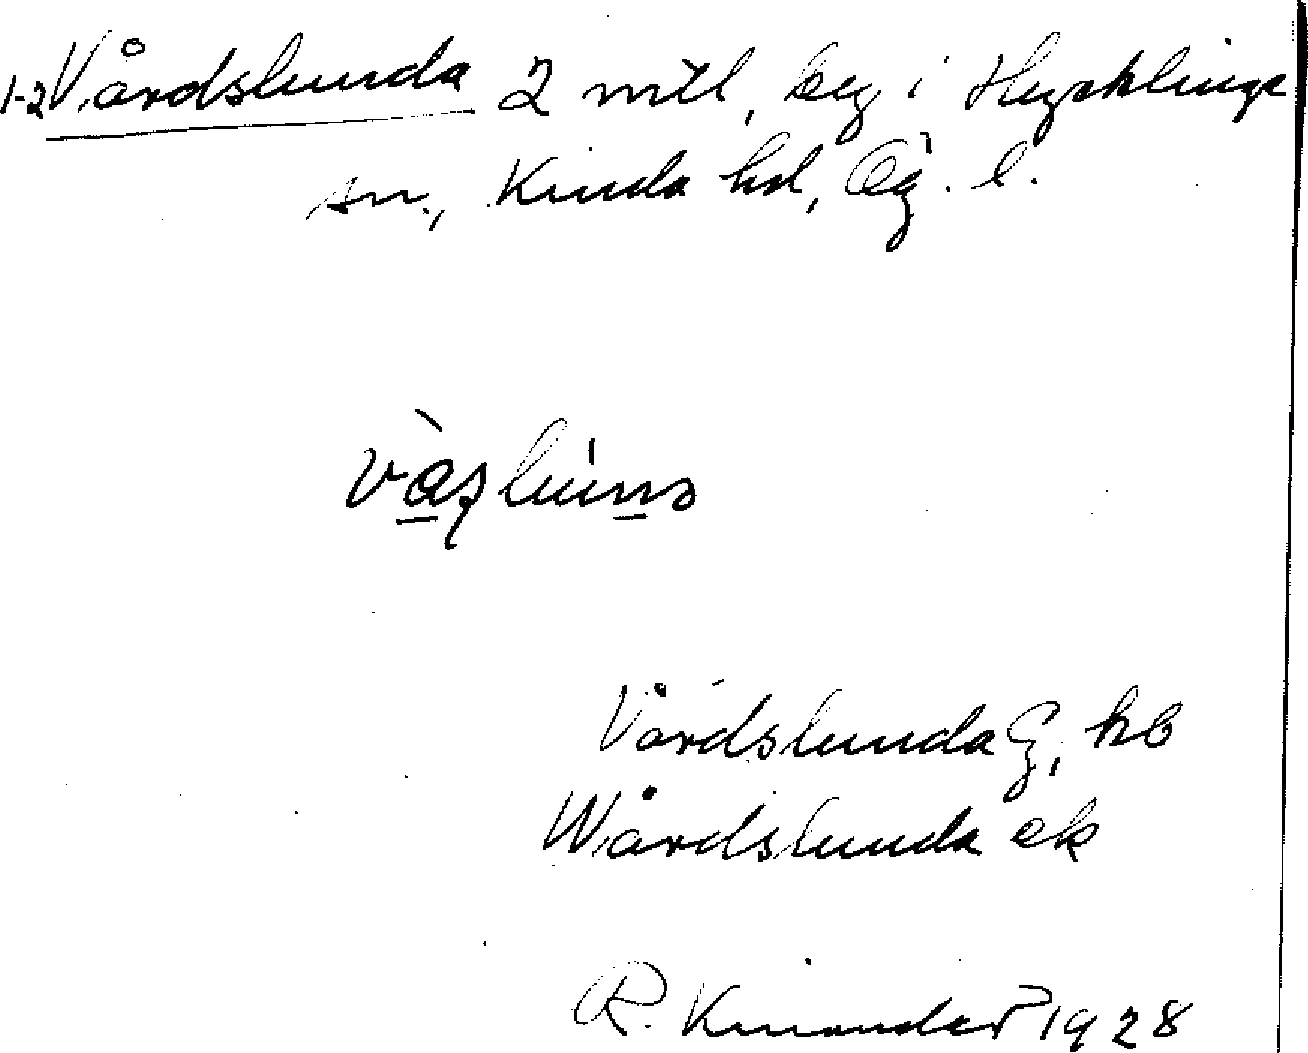 1-2 Vårdslunda 2 mtl, by i Hycklinge
sn., Kinda hd, Ög. l.
Vårdslunda G, kb
Wårdslunda ek
R. Kinander 1928